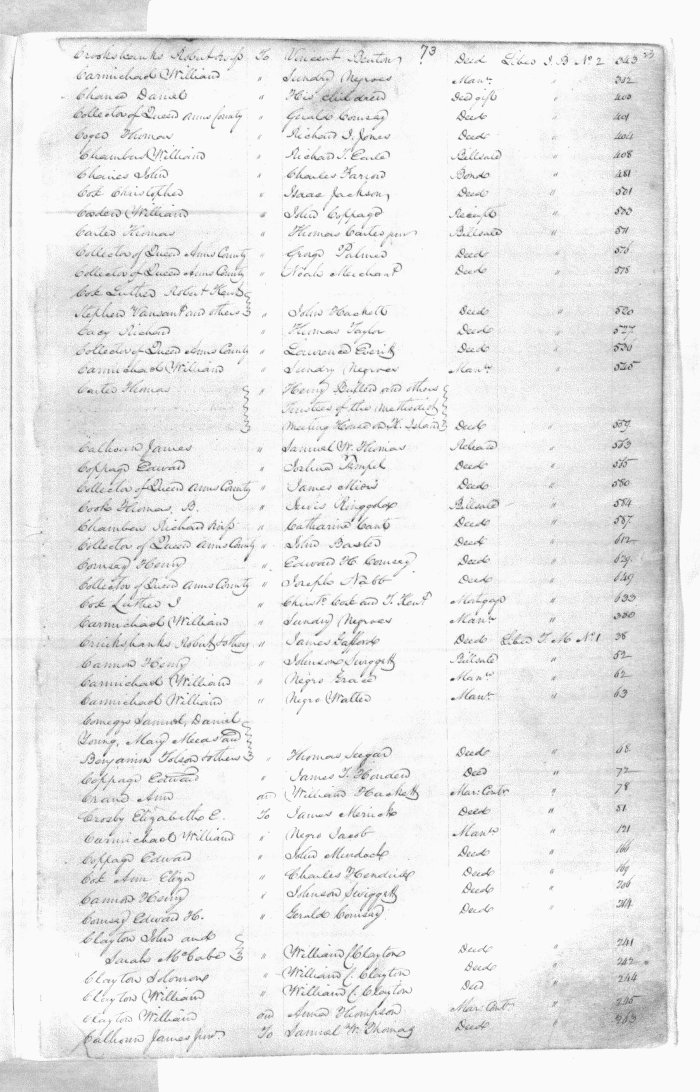 73
Crookshanks Robert & Wife To Vincent Benton Deed Liber J B No 2 343
Carmichael William " Sundry Negroes Manr 392
Chance Daniel " His children Deed gift 400
Collector of Queen Anns County " Gerald Comsey Deed 401
Coger Thomas " Richard I. Jones Deed 404
Chambers William " Richard T. Earle Billsale 408
Chaires John " Charles Farrow Bond 481
Cox Christopher " Isaac Jackson Deed 501
Casden William " John Coppage Receipt
Carter Thomas " Thomas Carter junr Billsale 571
Collector of Queen Anns County " George Palmer Deed 576
Collector of Queen Anns County " Noah Merchant Deed 578
Cox Luther Robert Kent
Stephen Vansant and others " John Hackett Deed 520
Cacy Richard " Thomas Taylor Deed 527
Collector of Queen Anns County " Lawrence Everitt Deed 536
Carmichael William " Sundry Negroes Manr 545
Carter Thomas " Henry and others
Trustees of the Methodist
Meeting House on K. Island Deed 559
Calhoun James " Samuel W. Thomas Release 563
Coppage Edward " Deed 565
Collector of Queen Anns County " James Deed 580
Cook Thomas, B. " Ringgold Billsale 584
Chambers Richard & Wife " Catharine Deed 587
Collector of Queen Anns County " John Baxter Deed 612
Comsey Henry " Edward H. Comsey Deed 629
Collector of Queen Anns County " Joseph Nabb Deed 649
Cox Luther J " Christr Cox and T. Kent Mortgage 633
Carmichael William " Sundry Negroes Manr 350
Crickshanks Robert & others " James Gafford Deed Liber T. M No 1 38
Cannon Henry " Johnson Swiggett Billsale 52
Carmichael William " Negro Grace Manr 62
Carmichael William " Negro Walter Manr 63
Comegys Samuel, Daniel
Young, Mary Meeds and
Benjamin Toleson & others " Thomas Seegar Deed 68
Coppage Edward " James T. Deed 72
Ann and William Hackett Mar: Contr 78
Crosby Elizabeth E. To James Merrick Deed 81
Carmichael William " Negro Jacob Manr 121
Coppage Edward " John Murdoch Deed 166
Cox Ann Eliza " Charles Hendrix Deed 169
Cannon Henry " Johnson Swiggett Deed 206
Comsey Edward H. " Gerald Comsey Deed 214
Clayton John and
Sarah McCabe " William Clayton Deed 241
Clayton Solomon " William C. Clayton Deed 242
Clayton William " William C Clayton Deed 244
Clayton William and Anna Thompson Mar: Contr 245
Calhoun James junr To Samuel W. Thomas Deed 263